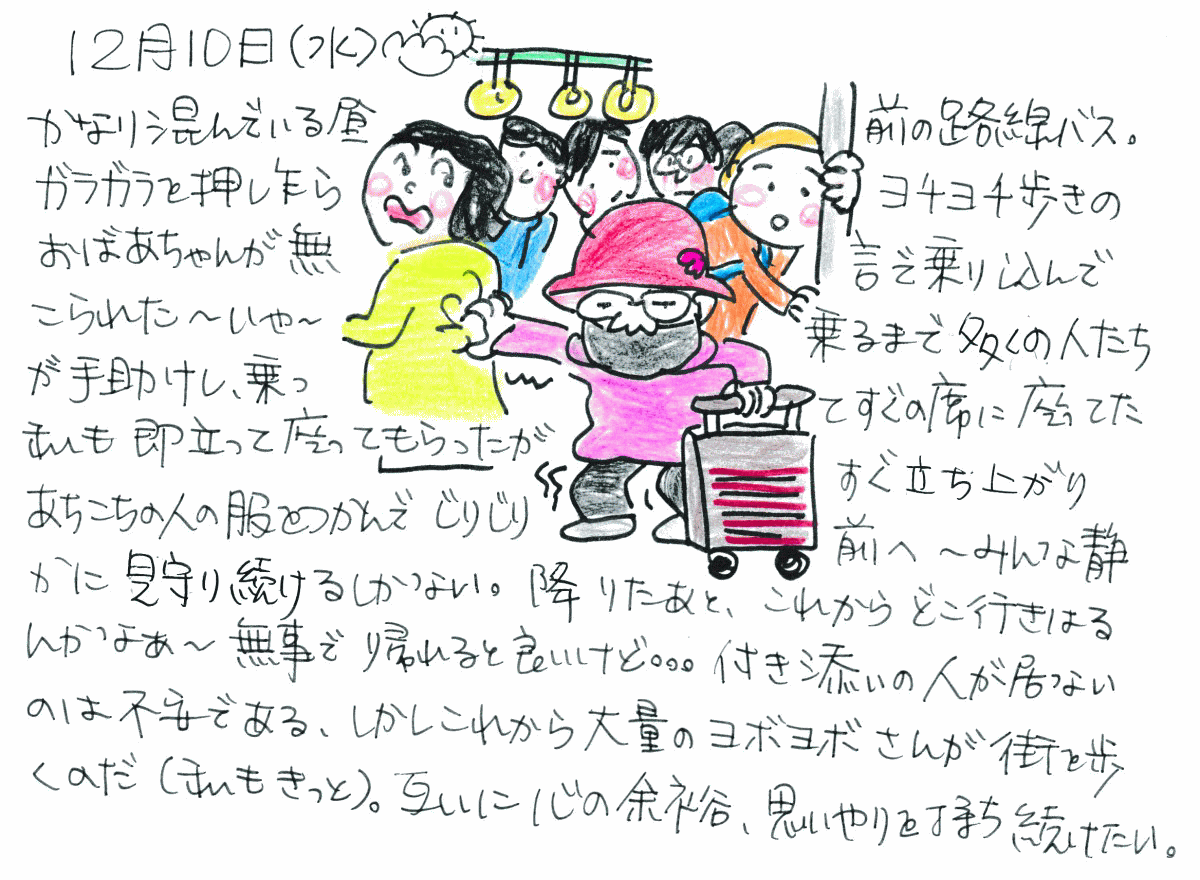 12月10日(水)
かなり混んでいる昼前の路線バス。
ガラガラを押し乍らヨチヨチ歩きの
おばあちゃんが無言で乗り込んで
こられた〜いや〜乗るまで多くの人たち
が手助けし、乗ってすぐの席に座ってた
私も即立って座ってもらったがすぐ立ち上がり
あちこちの人の服をつかんでじりじり前へ〜みんな静
かに見守り続けるしかない。降りたあと、これからどこ行きはる
んかなぁ〜無事で帰れると良いけど。。。付き添いの人が居ない
のは不安である、しかしこれから大量のヨボヨボさんが街を歩
くのだ(私もきっと)。互いに心の余裕、思いやりを持ち続けたい。